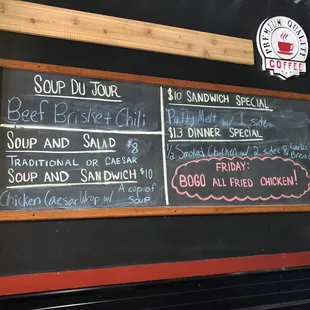 PREMIUM QUALITY
COFFEE
SOUP DU JOUR
Beef Brisket Chili
SOUP AND SALAD $8
TRADITIONAL OR CAESAR
SOUP AND SANDWICH $10
Chicken Caesar Wrap w/ A cup of SOUP
$10 SANDWICH SPECIAL
Patty Melt w/ 1 side
$13 DINNER SPECIAL
½ Smoked Chicken w/ 2 sides & Garlic Bread
FRIDAY:
BOGO ALL FRIED CHICKEN!